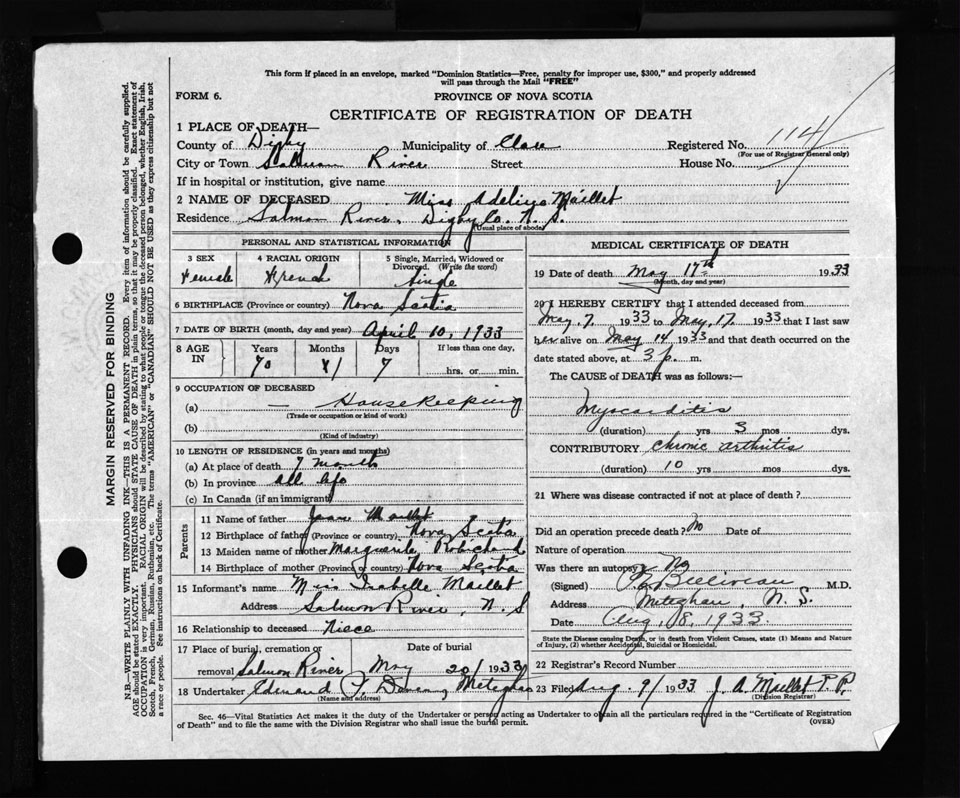 This form if placed in an envelope, marked "Dominion Statistics—Free, penalty for improper use, $300," and properly addressed
will pass through the Mail "FREE"
FORM 6.
PROVINCE OF NOVA SCOTIA
CERTIFICATE OF REGISTRATION OF DEATH
1 PLACE OF DEATH—
County of Digby Municipality of Clare Registered No. 1141
(For use of Registrar General only)
City or Town Salmon River Street House No.
If in hospital or institution, give name
2 NAME OF DECEASED Miss Adeliye Maillet
Residence Salmon River, Digby Co. N. S.
(Usual place of abode)
PERSONAL AND STATISTICAL INFORMATION
3 SEX 4 RACIAL ORIGIN 5 Single, Married, Widowed or Divorced. (Write the word)
Female French Single
6 BIRTHPLACE (Province or country) Nova Scotia
7 DATE OF BIRTH (month, day and year) April 10, 1933
8 AGE IN Years Months Days If less than one day,
70 1 7 hrs. or min.
9 OCCUPATION OF DECEASED
(a) — Housekeeping
(Trade or occupation or kind of work)
(b)
(Kind of industry)
10 LENGTH OF RESIDENCE (in years and months)
(a) At place of death 7 month
(b) In province all
(c) In Canada (if an immigrant)
Parents
11 Name of father Maillet
12 Birthplace of father (Province or country) Nova Scotia
13 Maiden name of mother Marguerite Robichaud
14 Birthplace of mother (Province or country) Nova Scotia
15 Informant's name Miss Isabelle Maillet
Address Salmon River, N. S
16 Relationship to deceased Niece
17 Place of burial, cremation or Date of burial
removal Salmon River May 20/ 1933
18 Undertaker Edmund Meteghan
(Name and address)
MEDICAL CERTIFICATE OF DEATH
19 Date of death May 17th 1933
(Month, day and year)
20 I HEREBY CERTIFY that I attended deceased from
May 7. 1933 to May, 17. 1933 that I last saw
her alive on May 14 1933 and that death occurred on the
date stated above, at 3 p. m.
The CAUSE of DEATH was as follows:—
Myocarditis
(duration) yrs 3 mos dys.
CONTRIBUTORY Chronic arthritis
(duration) 10 yrs mos dys.
21 Where was disease contracted if not at place of death?
Did an operation precede death? No Date of
Nature of operation
Was there an autopsy No
(Signed) Belliveau M.D.
Address Meteghan, N. S.
Date Aug, 8, 1933.
State the Disease causing Death, or in death from Violent Causes, state (1) Means and Nature
of Injury, (2) whether Accidental, Suicidal or Homicidal.
22 Registrar's Record Number
23 Filed Aug. 9/ 1933 J. A. Maillet
(Division Registrar)
Sec. 46—Vital Statistics Act makes it the duty of the Undertaker or person acting as Undertaker to obtain all the particulars required in the "Certificate of Registration
of Death" and to file the same with the Division Registrar who shall issue the burial permit.
(OVER)
MARGIN RESERVED FOR BINDING
N.B.—WRITE PLAINLY WITH UNFADING INK—THIS IS A PERMANENT RECORD. Every item of information should be carefully supplied.
AGE should be stated EXACTLY. PHYSICIANS should STATE CAUSE OF DEATH in plain terms, so that it may be properly classified. Exact statement of
OCCUPATION is very important. RACIAL ORIGIN will be described by stating to what people or tongue the deceased person belonged, whether English, Irish,
Scotch, French, German, Russian, Ruthenian, etc. The terms "AMERICAN" or "CANADIAN" SHOULD NOT BE USED as they express citizenship but not
a race or people. See instructions on back of Certificate.